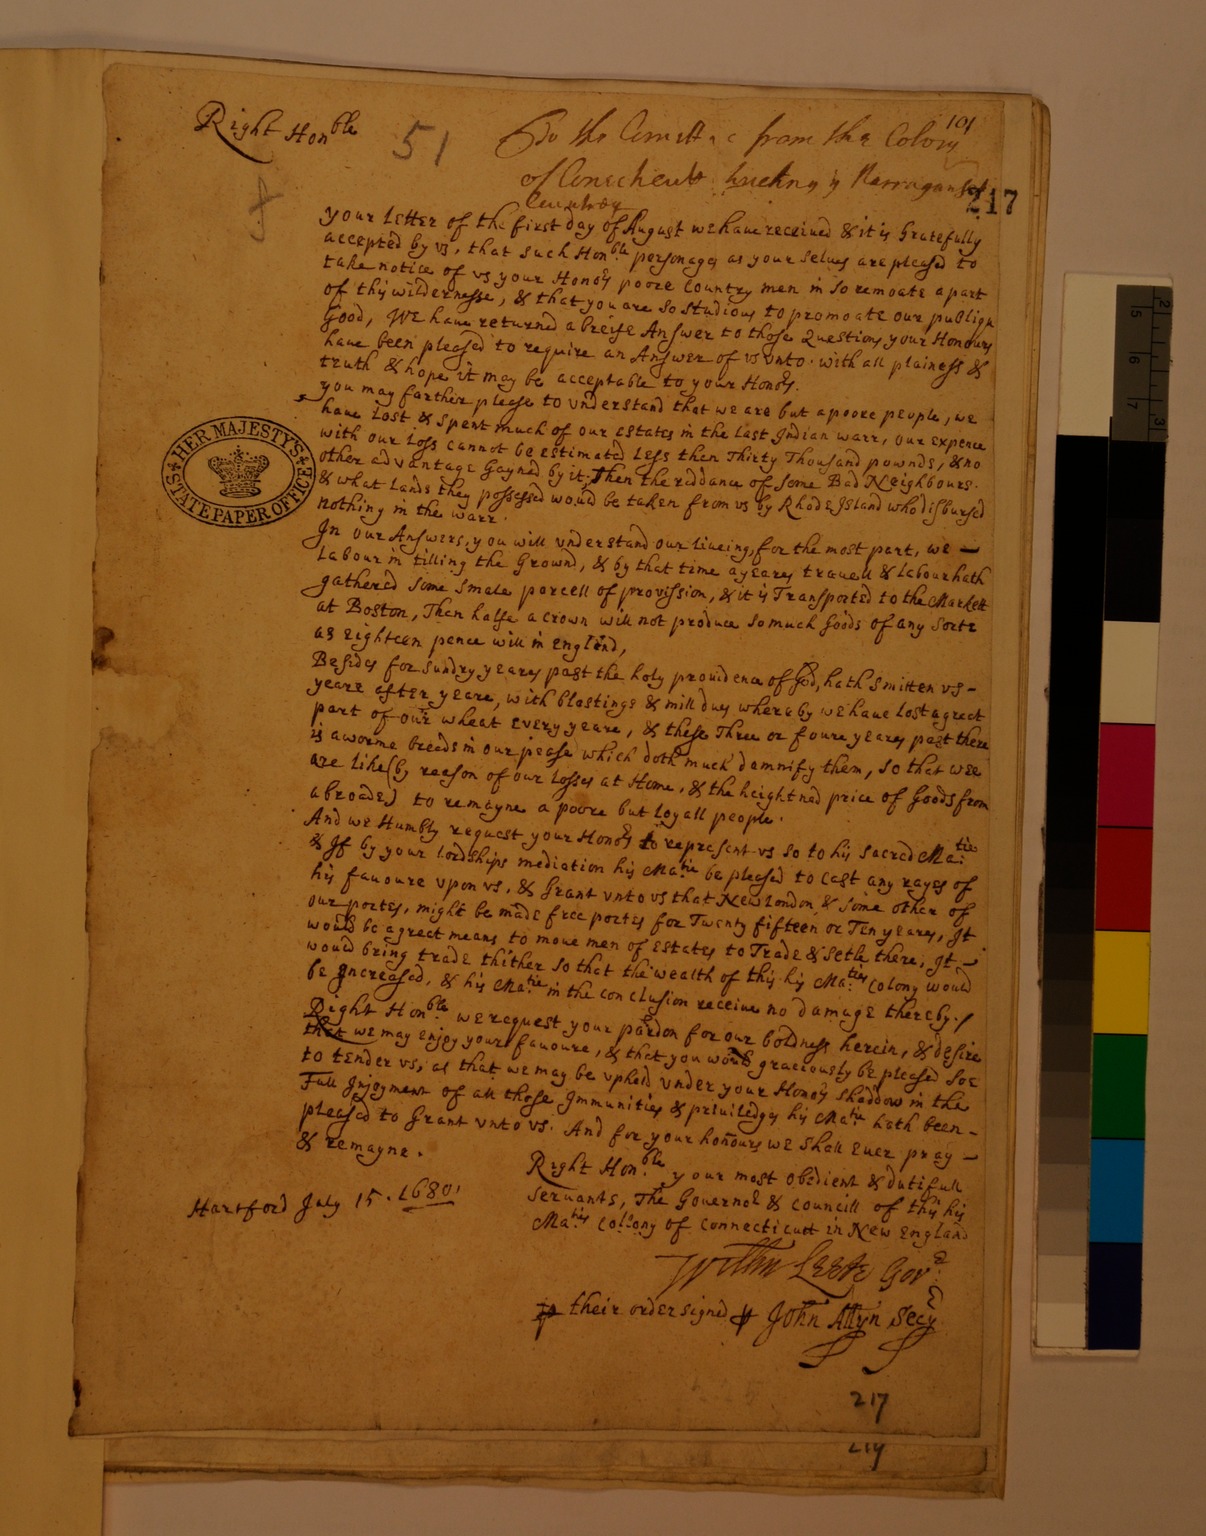 Right Honble
51
101
To the Comitte from the Colony
of Conecticutt Narraganset
Cuntrey
217
your Letter of the first day of August we haue receiued & it is Gratefully
accepted by vs, that such Honble personages as your selues are pleased to
take notice of vs your Honors poore Country men in so remoate a part
of this wildernesse, & that you are so studious to promoate our publique
Good, We haue returned a breife Answer to those Questions your Honours
haue been pleased to require an Answer of vs vnto with all plainess &
truth & hope it may be acceptable to your Honors.
you may farther please to vnderstand that we are but a poore people, we
haue Lost & spent much of our estates in the last Indian warr, our expence
with our Loss cannot be estimated Less then Thirty Thousand pownds, & no
other advantage Gayned by it, Then the riddance of some Bad Neighbours.
& what Lands they possessed would be taken from vs by Rhode Island who disbursed
nothing in the warr.
In our Answers, you will vnderstand our liueing, for the most part, we
Labour in tilling the Grownd, & by that time a yeares trauell & Labour hath
gathered some smale parcell of provission, & it is Transported to the Markett
at Boston, Then halfe a crown will not produce so much Goods of any sorte
as eighteen pence will in England,
Besides for sundry yeares past the holy prouidence of God, hath smitten vs -
yeare after yeare, with blastings & mill dues whereby we haue lost a great
part of our wheat every yeare, & these Three or foure yeares past there
is a worme breeds in our pease which doth much damnify them, so that wee
are like (by reason of our Losses at Home, & the heightned price of Goods from
abroade) to remayne a poore but loyall people.
And we Humbly request your Honors to represent vs so to his sacred Ma:tie
& If by your lordships mediation his Ma:tie be pleased to cast any rayes of
his fauoure vpon vs, & Grant vnto vs that New London & some other of
our portes, might be made free portes for Twenty fifteen or Ten yeares, It
would be a great means to moue men of estates to Trade & setle there, It
would bring trade thither so that the wealth of this his Ma:ties Colony would
be Increased, & his Ma:tie in the conclusion receiue no damage thereby./
Right Honble we request your pardon for our boldness herein, & desire
that we may enjoy your fauoure, & that you would graciously be pleased soe
to tender vs, as that we may be vpheld vnder your Honors shaddow in the
Full Injoyment of all those Immunities & priuiledges his Ma:tie hath been -
pleased to Grant vnto vs. And for your honours we shall euer pray -
& remayne.
Right Hon:ble your most obedient & dutifull
seruants, The Gouernor & councill of this his
Ma:ties Colony of Connecticutt in New England
Hartford July 15. 1680.
Willm Leete Govr:
their order signed John Allyn Secry
217
217
HER MAJESTY'S
STATE PAPER OFFICE